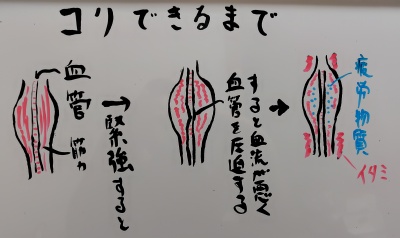 コリできるまで
血管
筋力
緊強すると
血管を圧迫する
すると血流が悪く
疲労物質
イタミ